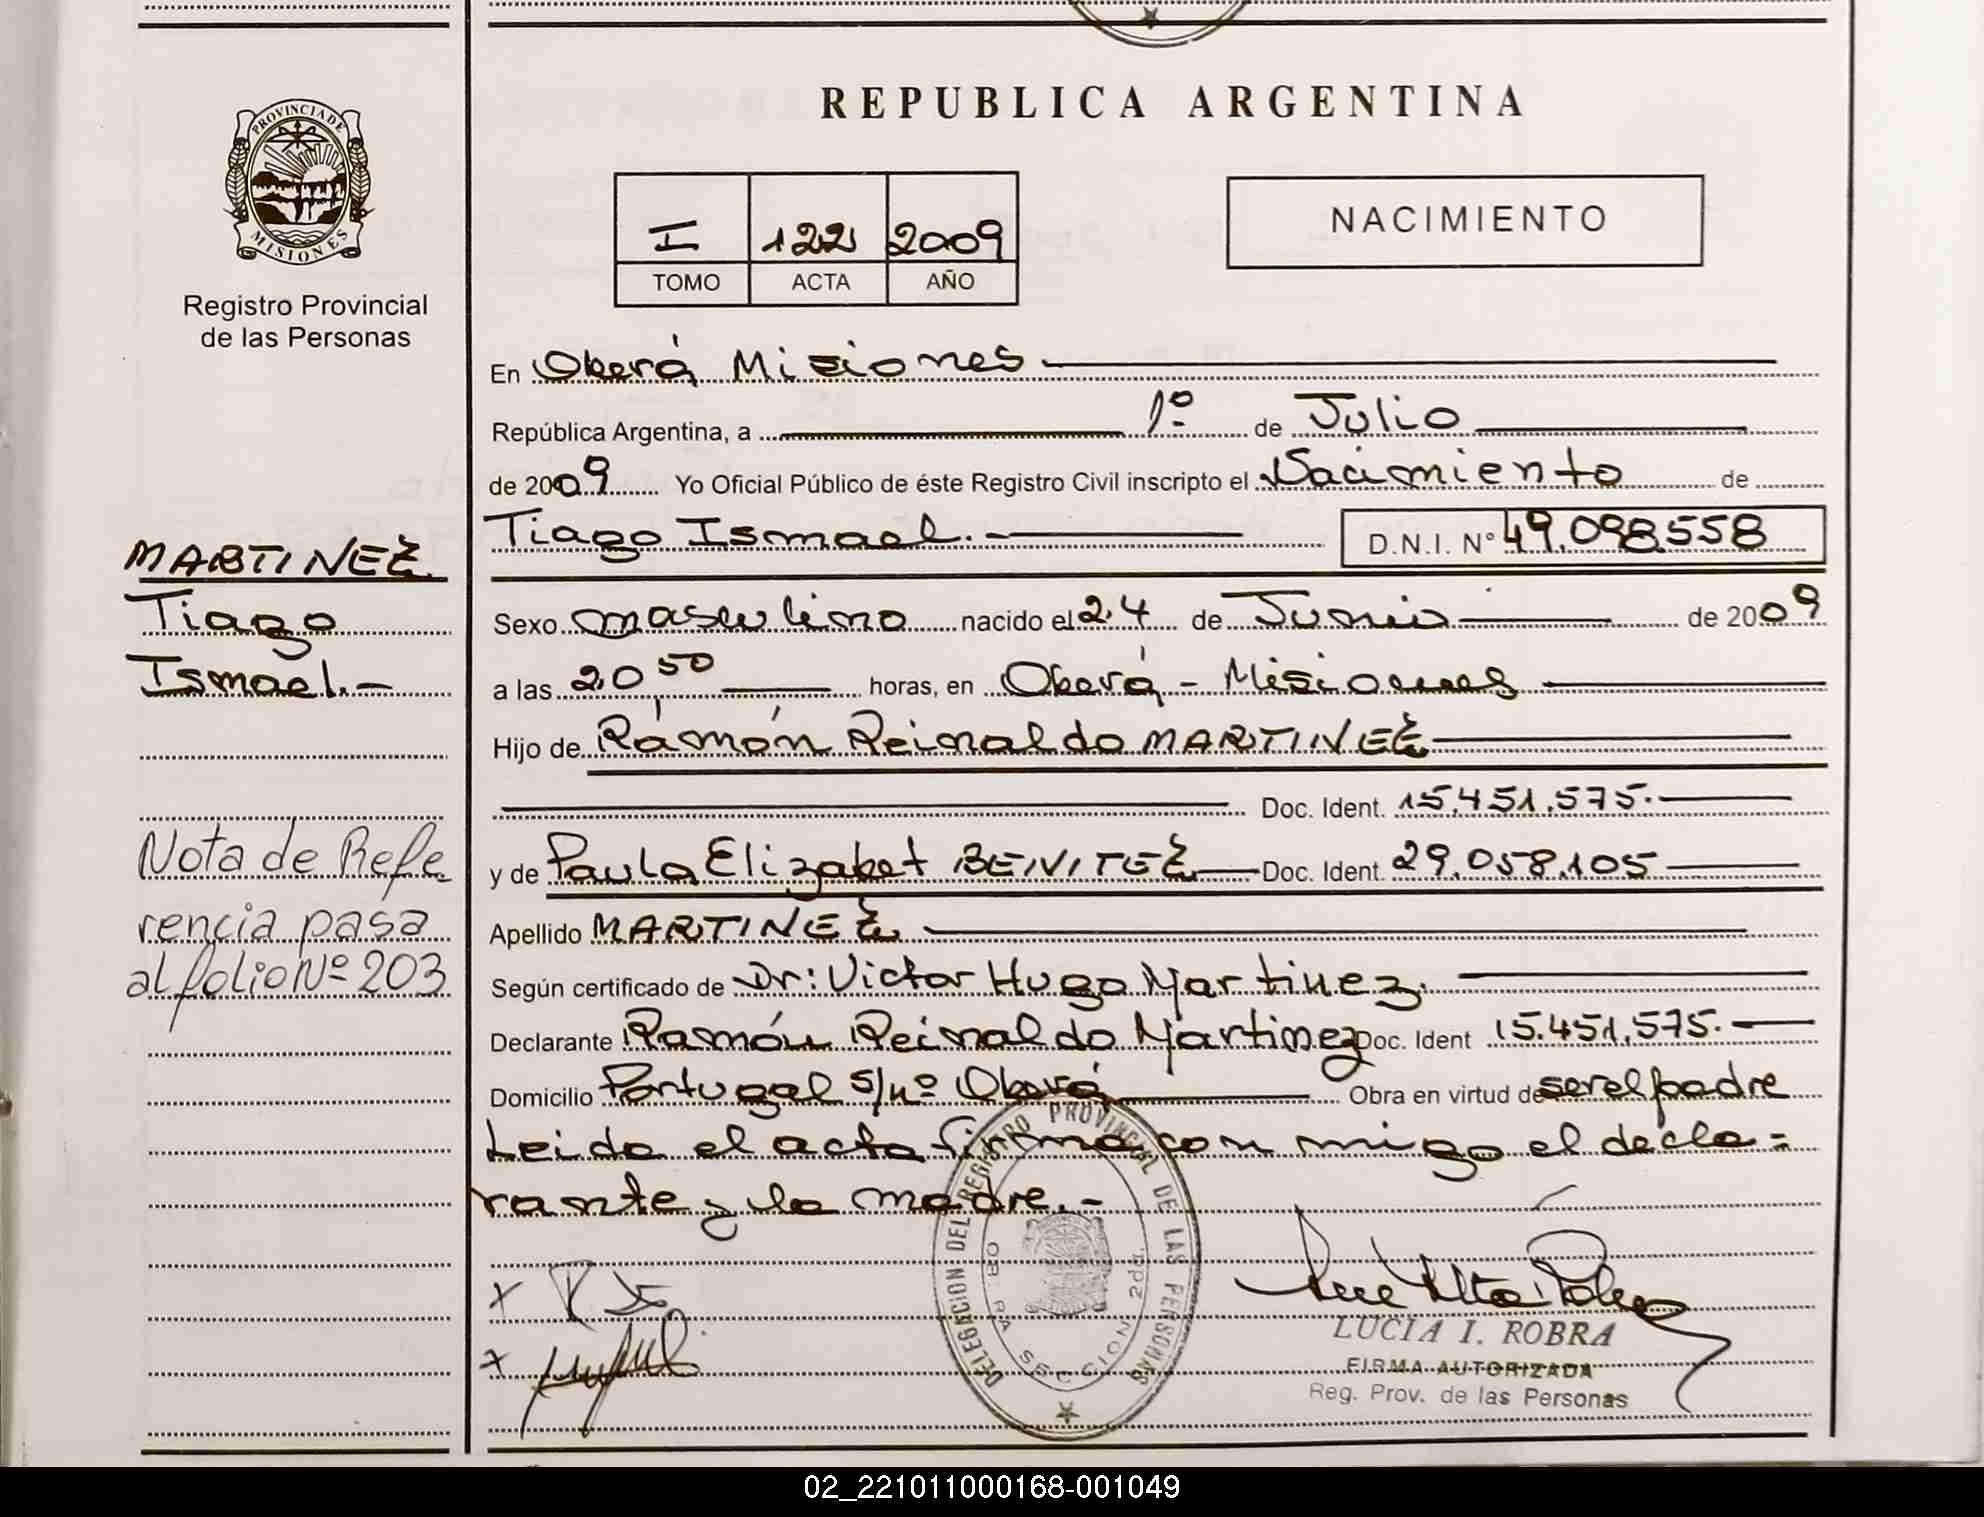 PROVINCIA DE
MISIONES
Registro Provincial
de las Personas
MARTINEZ
Tiago
Ismael.-
Nota de Refe
rencia pasa
al folio Nº 203
REPUBLICA ARGENTINA
I 122 2009
TOMO ACTA AÑO
NACIMIENTO
En Oberá Misiones
República Argentina, a 1º de Julio
de 2009 Yo Oficial Público de éste Registro Civil inscripto el Nacimiento de
Tiago Ismael.- D.N.I. Nº 49.098.558
Sexo masculino nacido el 24 de Junio de 2009
a las 20 50 horas, en Oberá - Misiones
Hijo de Ramón Reinaldo MARTINEZ
Doc. Ident. 15.451.575.
y de Paula Elizabet BENITEZ Doc. Ident. 29.058.105
Apellido MARTINEZ
Según certificado de Dr: Victor Hugo Martinez.
Declarante Ramón Reinaldo Martinez Doc. Ident 15.451.575.
Domicilio Portugal s/nº Oberá Obra en virtud de ser el padre
Leida el acta firma con migo el decla=
rante y la madre.-
DELEGACION DEL REGISTRO PROVINCIAL DE LAS PERSONAS
OBERA SECCION 2da.
LUCIA I. ROBRA
FIRMA AUTORIZADA
Reg. Prov. de las Personas
02_221011000168-001049